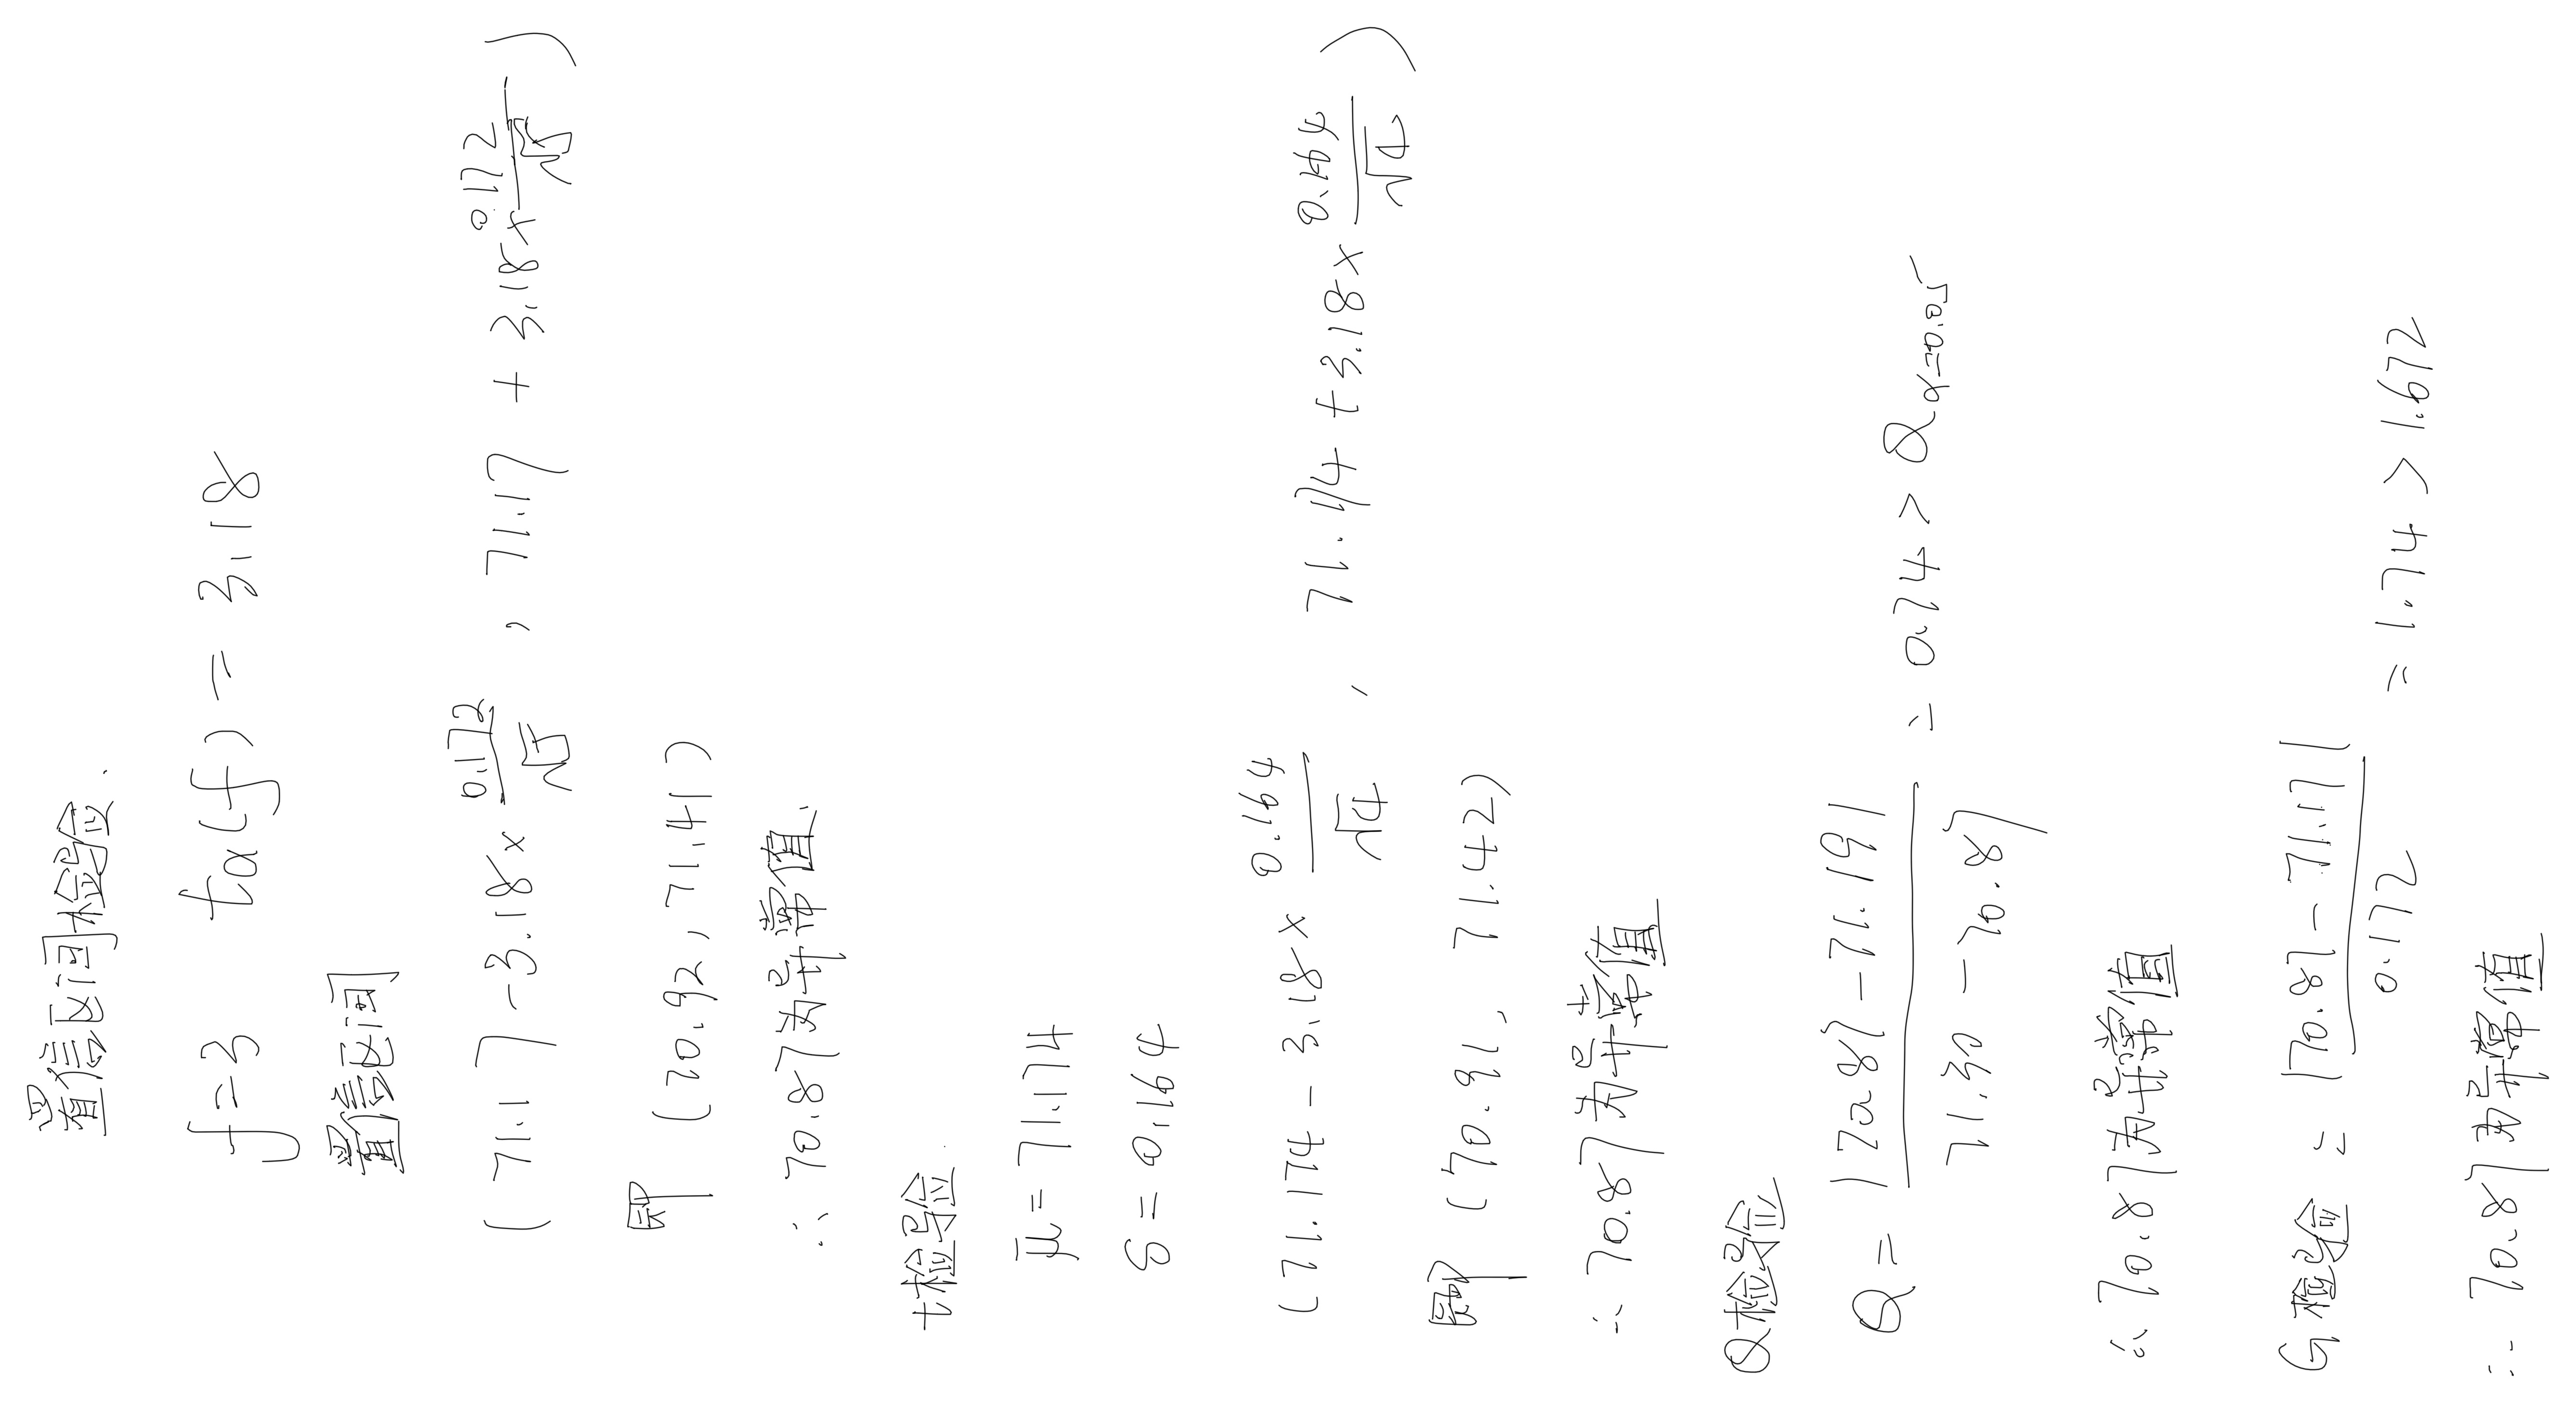 置信区间检验.
f=3 tα(f) = 3.18
置信区间
(71.17-3.18×0.172/√5, 71.17+3.18×0.172/√5)
即 (70.92, 71.41)
∴ 70.87为异常值.
t检验.
μ̄=71.174
S=0.164
(71.174-3.18×0.164/√4, 71.174+3.18×0.164/√4)
即 (70.91, 71.42)
∴ 70.87为异常值
Q检验
Q=|70.87-71.19|/71.30-70.87=0.74>Qα=0.05
∴ 70.87为异常值
G检验=|70.87-71.17|/0.172=1.74>1.672
∴ 70.87为异常值